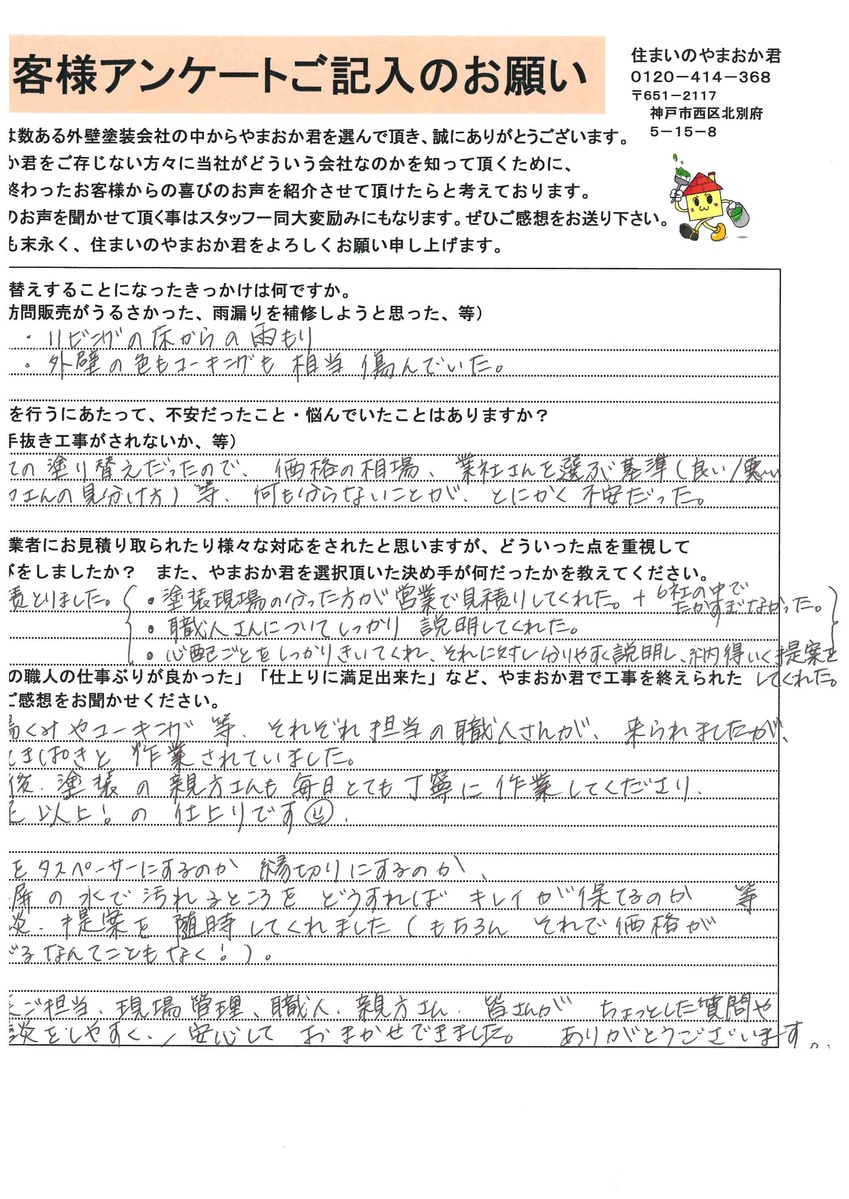 客様アンケートご記入のお願い
住まいのやまおか君
0120－414－368
〒651－2117
神戸市西区北別府
5－15－8
は数ある外壁塗装会社の中からやまおか君を選んで頂き、誠にありがとうございます。
か君をご存じない方々に当社がどういう会社なのかを知って頂くために、
終わったお客様からの喜びのお声を紹介させて頂けたらと考えております。
のお声を聞かせて頂く事はスタッフ一同大変励みにもなります。ぜひご感想をお送り下さい。
も末永く、住まいのやまおか君をよろしくお願い申し上げます。
替えすることになったきっかけは何ですか。
訪問販売がうるさかった、雨漏りを補修しようと思った、等）
・リビングの床からの雨もり
・外壁の色もコーキングも相当傷んでいた。
を行うにあたって、不安だったこと・悩んでいたことはありますか？
手抜き工事がされないか、等）
ての塗り替えだったので、価格の相場、業社さんを選ぶ基準（良い/悪い
さんの見分け方）等、何も分らないことが、とにかく不安だった。
業者にお見積り取られたり様々な対応をされたと思いますが、どういった点を重視して
をしましたか？　また、やまおか君を選択頂いた決め手が何だったかを教えてください。
責とりました。
・塗装現場の分った方が営業で見積りしてくれた。＋6社の中でたかすぎなかった。
・職人さんについてしっかり説明してくれた。
・心配ごとをしっかりきいてくれ、それに対し分りやすく説明し、納得いく提案をしてくれた。
の職人の仕事ぶりが良かった」「仕上りに満足出来た」など、やまおか君で工事を終えられた
ご感想をお聞かせください。
くみやコーキング等、それぞれ担当の職人さんが、来られましたが、
きぱきと作業されていました。
後、塗装の親方さんも毎日とても丁寧に作業してくださり、
以上！の仕上りです
をタスペーサーにするのか縁切りにするのか、
の水で汚れるところをどうすればキレイが保てるのか等
提案を随時してくれました（もちろんそれで価格が
るなんてこともなく！）。
ご担当、現場管理、職人、親方さん、皆さんがちょっとした質問や
談をしやすく、安心しておまかせできました。ありがとうございます。